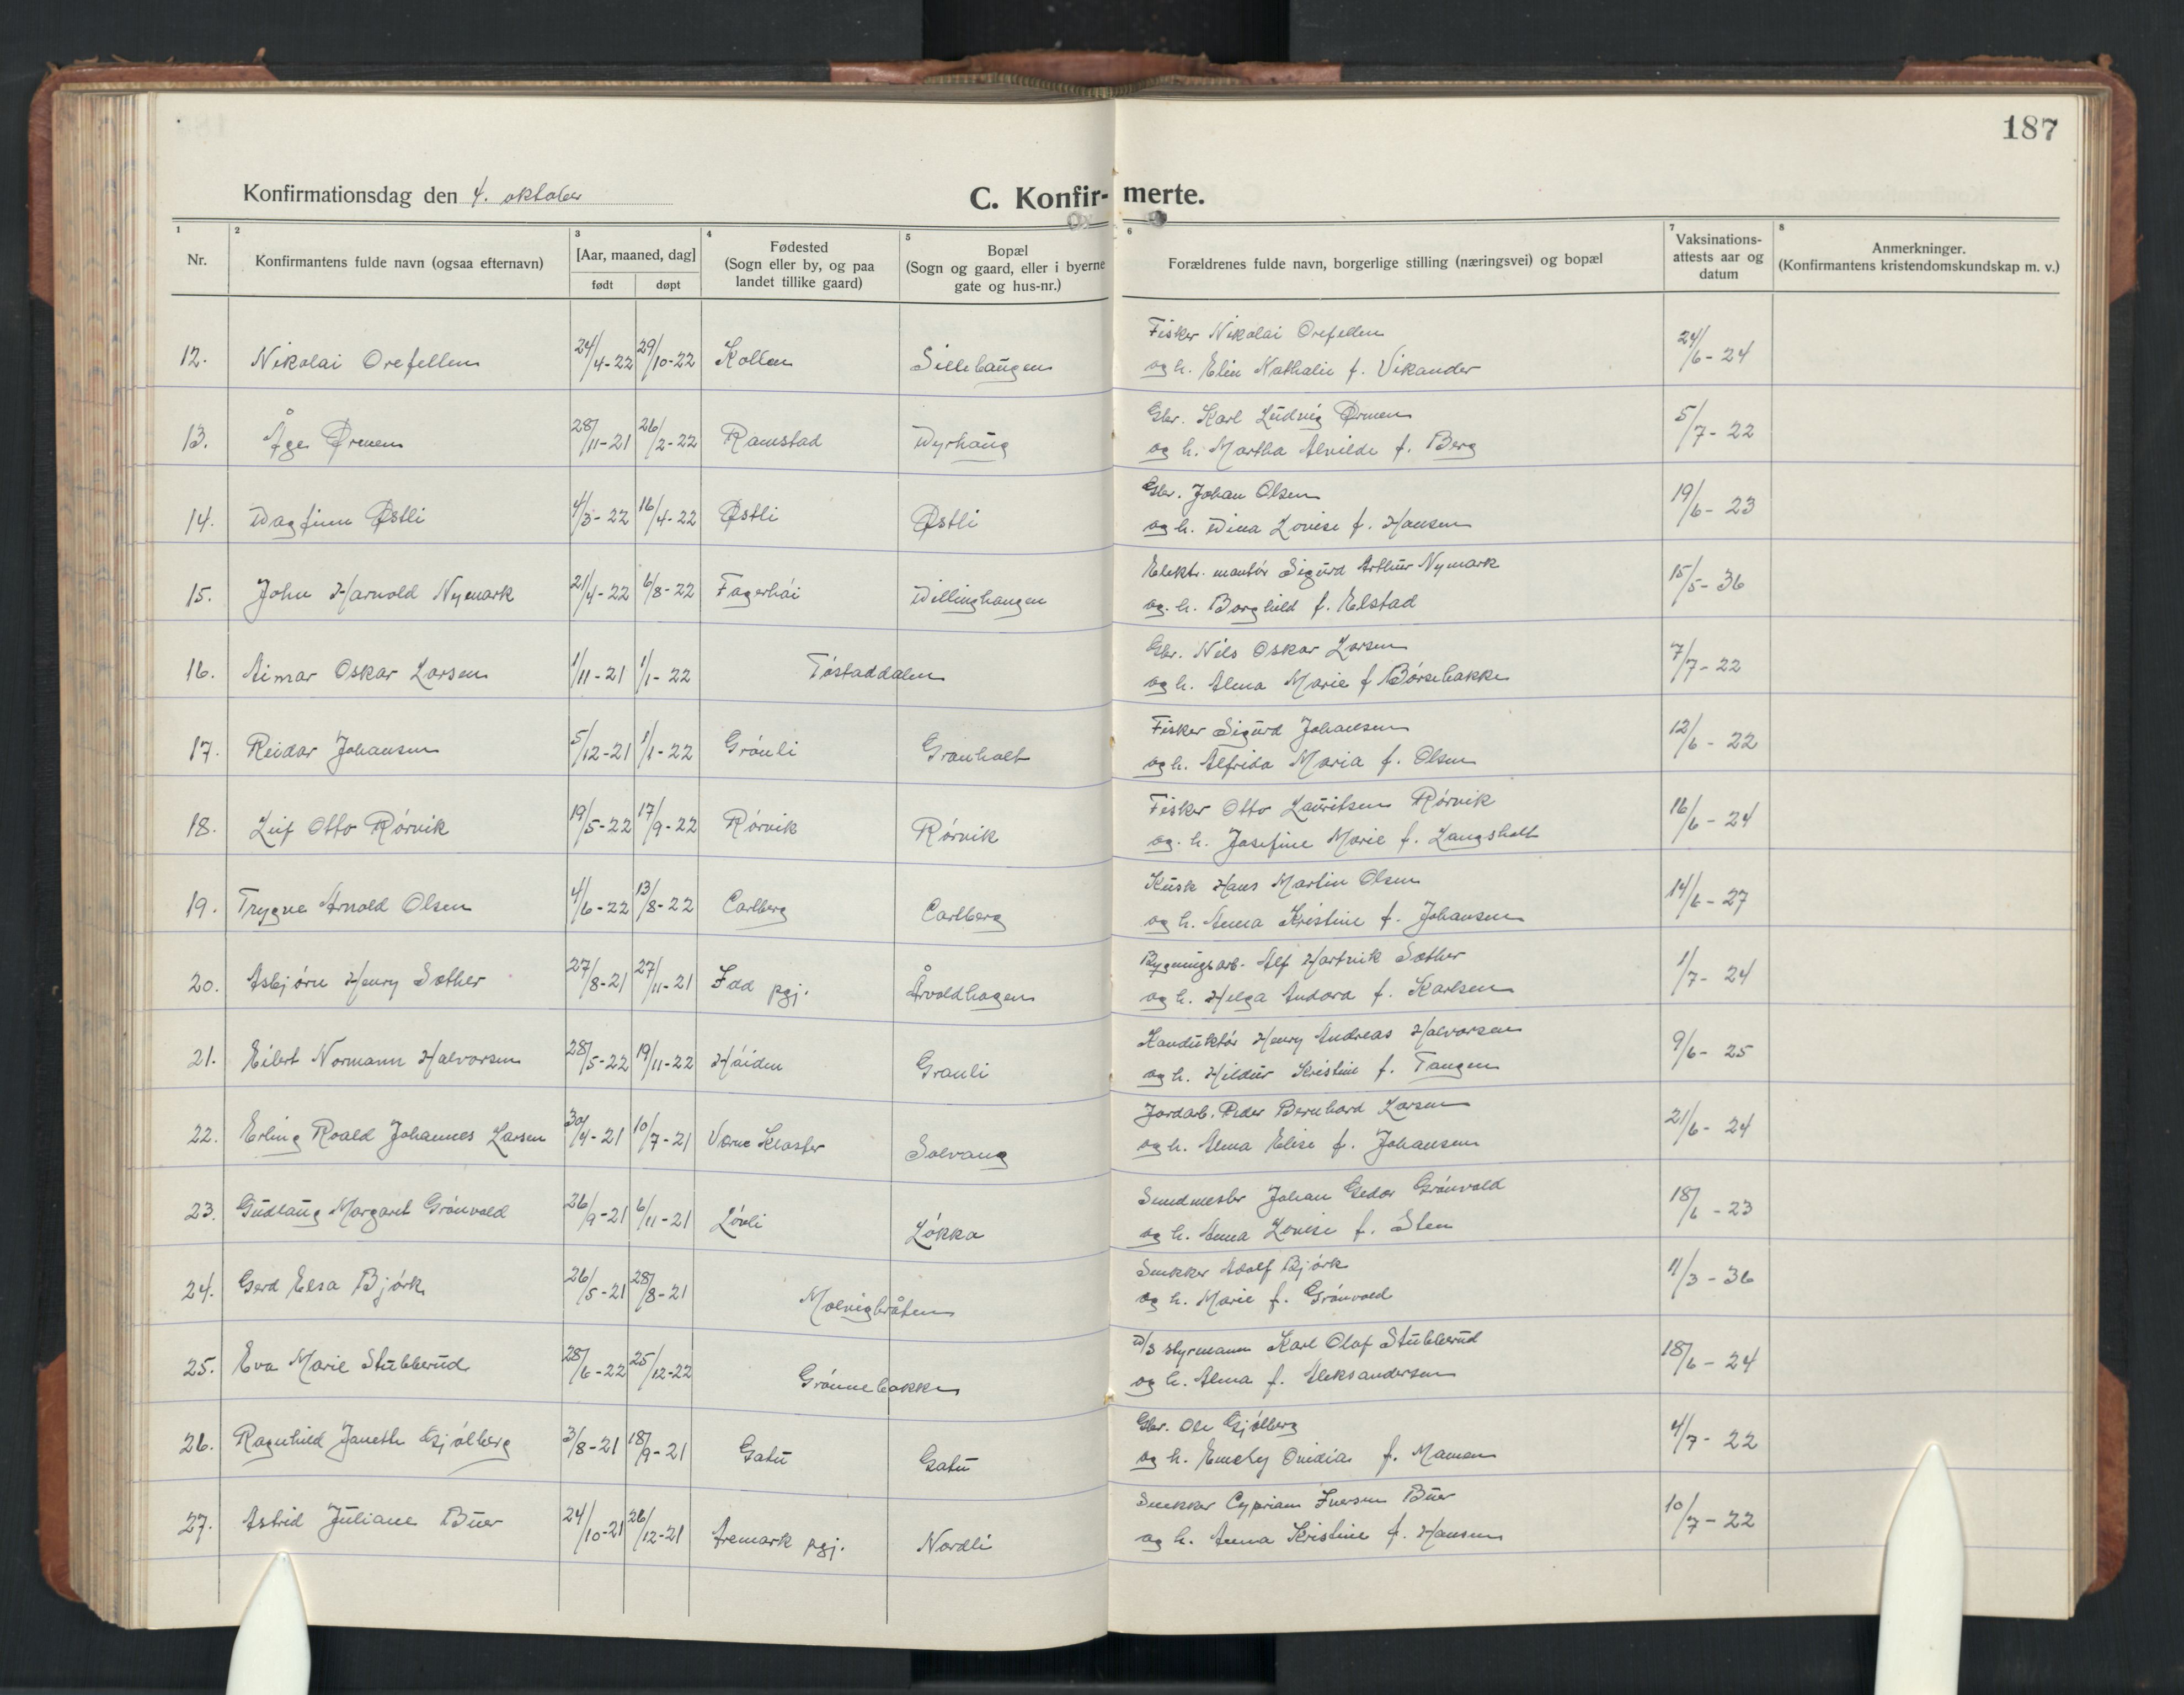 187
Konfirmationsdag den 4. oktober
C. Konfir- merte.
1 2 3 4 5 6 7 8
Nr.
Konfirmantens fulde navn (ogsaa efternavn)
[Aar, maaned, dag]
født døpt
Fødested
(Sogn eller by, og paa
landet tillike gaard)
Bopæl
(Sogn og gaard, eller i byerne
gate og hus-nr.)
Forældrenes fulde navn, borgerlige stilling (næringsvei) og bopæl
Vaksinations-
attests aar og
datum
Anmerkninger.
(Konfirmantens kristendomskundskap m. v.)
Fisker Nikolai Orefellen
12. Nikolai Orefellen 24/4-22 29/10-22 Kollen Sillebaugen og h. Elin Nathalie f. Vikander 24/6-24
Gbr. Karl Ludvig Ørmen
13. Åge Ørmen 28/11-21 26/2-22 Ramstad Dyrhaug og h. Martha Alvilde f. Berg 5/7-22
Gbr. Johan Olsen
14. Dagfinn Østli 4/3-22 16/4-22 Østli Østli og h. Dina Lovise f. Hansen 19/6-23
Elektr. montør Sigurd Arthur Nymark
15. John Harnold Nymark 21/4-22 6/8-22 Fagerhöi Dillinghaugen og. h. Borghild f. Elstad 15/5-36
Gbr. Nils Oskar Larsen
16. Aimar Oskar Larsen 1/11-21 1/1-22 Töstaddalen og h. Alma Marie f Börsebakke 7/7-22
Fisker Sigurd Johansen
17. Reidar Johansen 5/12-21 1/1-22 Grönli Granholt og h. Alfrida Maria f. Olsen 12/6-22
Fisker Otto Lauritsen Rörvik
18. Leif Otto Rörvik 19/5-22 17/9-22 Rörvik Rörvik og. h. Josefine Marie f. Langsholt 16/6-24
Kusk Hans Martin Olsen
19. Trygve Arnold Olsen 4/6-22 13/8-22 Carlberg Carlberg og h. Anna Kristine f. Johansen 14/6-27
Bygningsarb. Alf Hartvik Sæther
20. Asbjörn Henry Sæther 27/8-21 27/11-21 Idd pgj. Årvoldhagen og h. Helga Andora f. Karlsen 1/7-24
Konduktör Henry Andreas Halvorsen
21. Eilert Normann Halvorsen 28/5-22 19/11-22 Höiden Granli og h. Hildur Kristine f. Tangen 9/6-25
Jordarb. Peder Bernhard Larsen
22. Erling Roald Johannes Larsen 30/4-21 10/7-21 Værne Kloster Solvang og h. Alma Elise f. Johansen 21/6-24
Johan Gedor Grönvold
23. Gudlaug Margaret Grönvold 26/9-21 6/11-21 Lövli Lökka og h. Anna Lovise f. Sten 18/6-23
Snekker Adolf Björk
24. Gerd Elsa Björk 26/5-21 28/8-21 Molvigbråten og h. Marie f. Grönvold 11/3-36
D/S styrmann Karl Olaf Stubberud
25. Eva Marie Stubberud 28/6-22 25/12-22 Grönnebakke og h. Alma f. Aleksandersen 18/6-24
Gbr. Ole Gjölberg
26. Ragnhild Janette Gjölberg 3/8-21 18/9-21 Gatu Gatu og h. Emely Ovidia f. Mamen 4/7-22
Snekker Cyprian Iversen Buer
27. Astrid Juliane Buer 24/10-21 26/12-21 Aremark pgj. Nordli og h. Anna Kristine f. Hansen 10/7-22